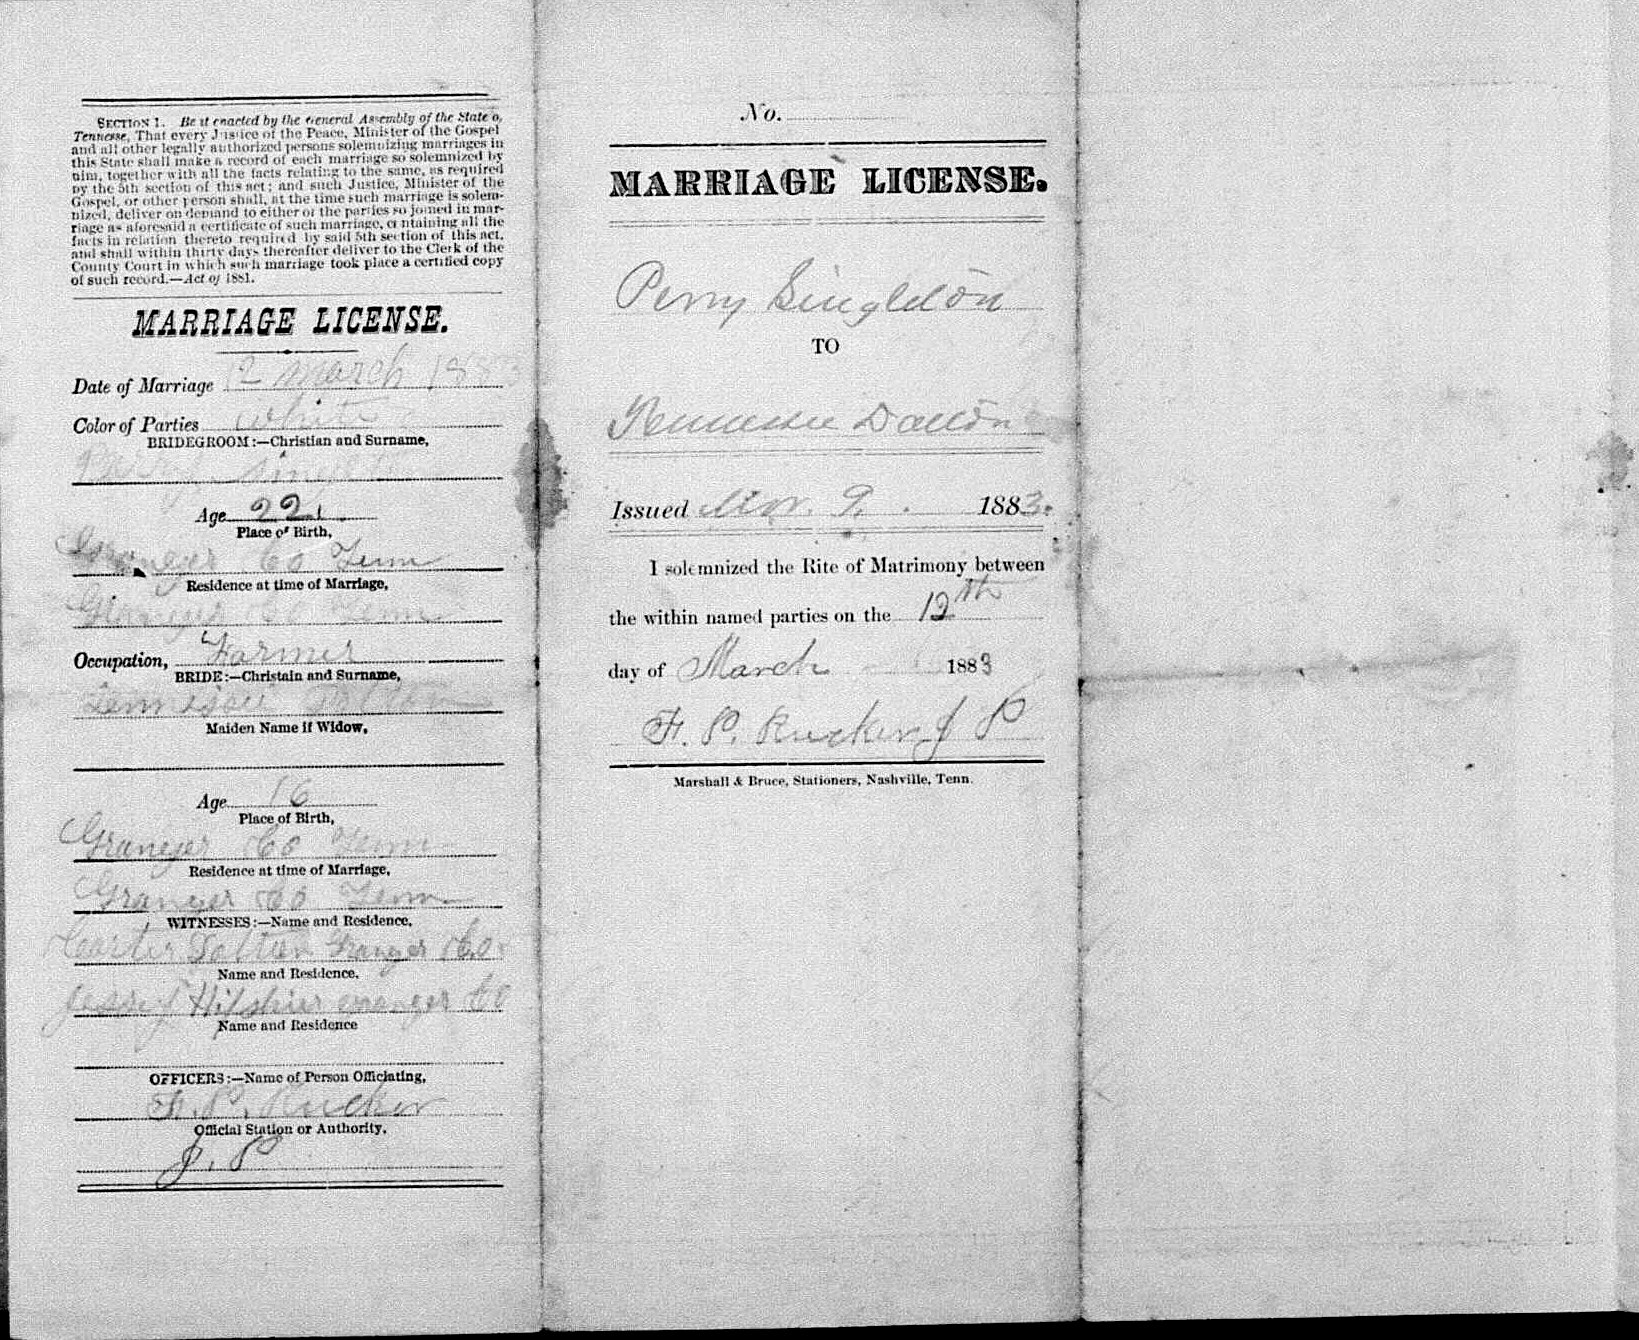 SECTION 1. Be it enacted by the General Assembly of the State o,
Tennesse, That every Justice of the Peace, Minister of the Gospel
and all other legally authorized persons solemnizing marriages in
this State shall make a record of each marriage so solemnized by
him, together with all the facts relating to the same, as required
by the 5th section of this act; and such Justice, Minister of the
Gospel, or other person shall, at the time such marriage is solem-
nized, deliver on demand to either of the parties so joined in mar-
riage as aforesaid a certificate of such marriage, containing all the
facts in relation thereto required by said 5th section of this act,
and shall within thirty days thereafter deliver to the Clerk of the
County Court in which such marriage took place a certified copy
of such record.—Act of 1881.
MARRIAGE LICENSE.
Date of Marriage 12 March 1883
Color of Parties white
BRIDEGROOM:—Christian and Surname,
Perry Singleton
Age 22
Place of Birth,
Granger Co Tenn
Residence at time of Marriage,
Granger Co Tenn
Occupation, Farmer
BRIDE:—Christain and Surname,
Tennessee
Maiden Name if Widow,
Age 16
Place of Birth,
Granger Co Tenn
Residence at time of Marriage,
Granger Co Tenn
WITNESSES:—Name and Residence,
Carter Dolton Granger Co
Name and Residence,
Granger Co
Name and Residence
OFFICERS:—Name of Person Officiating,
F. P. Rucker
Official Station or Authority,
J. P
No.
MARRIAGE LICENSE.
Perry Singleton
TO
Tennessee Dalton
Issued 9 1883.
I solemnized the Rite of Matrimony between
the within named parties on the 12th
day of March 1883
F. P. Rucker J P
Marshall & Bruce, Stationers, Nashville, Tenn.